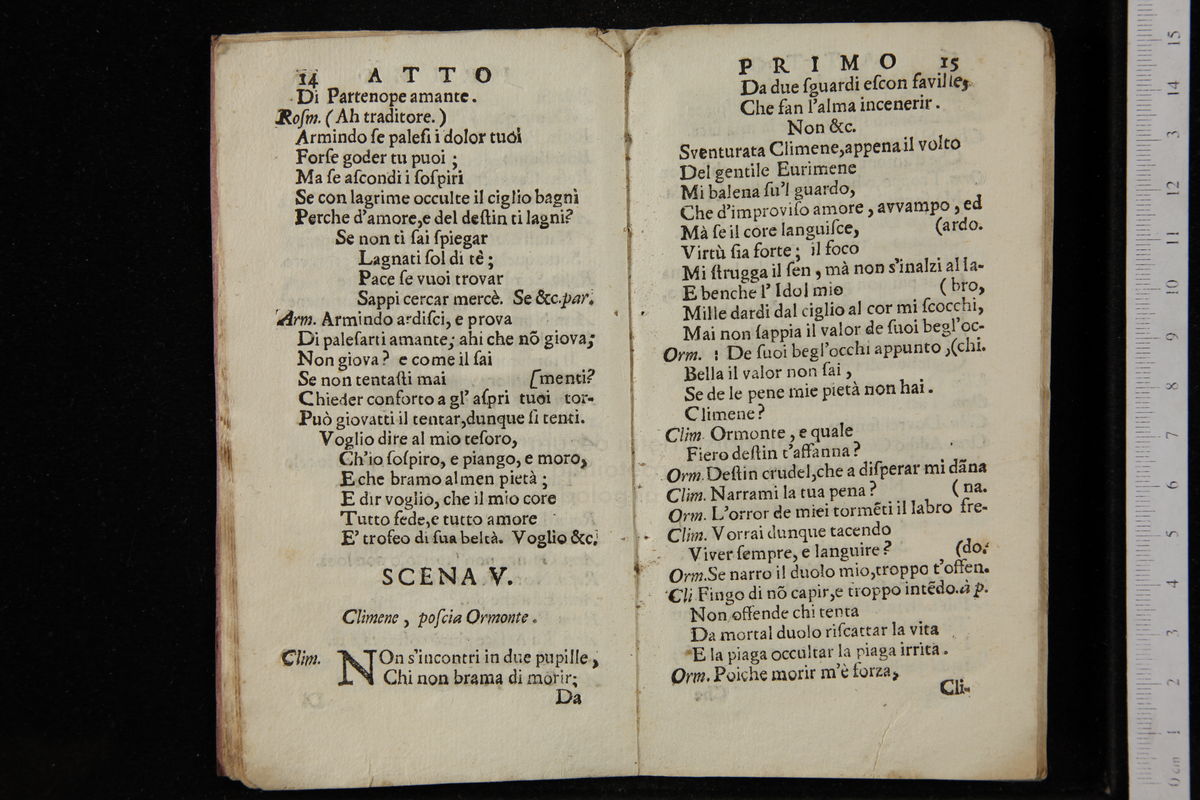 14 ATTO
Di Partenope amante.
Roſm. (Ah traditore.)
Armindo ſe paleſi i dolor tuoi
Forſe goder tu puoi ;
Ma ſe aſcondi i ſoſpiri
Se con lagrime occulte il ciglio bagni
Perche d'amore,e del deſtin ti lagni?
Se non ti ſai ſpiegar
Lagnati ſol di tè ;
Pace ſe vuoi trovar
Sappi cercar mercè. Se &c.par.
Arm. Armindo ardiſci, e prova
Di paleſarti amante; ahi che nõ giova;
Non giova? e come il ſai
Se non tentaſti mai [menti?
Chieder conforto a gl' aſpri tuoi tor-
Può giovatti il tentar,dunque ſi tenti.
Voglio dire al mio teſoro,
Ch'io ſoſpiro, e piango, e moro,
E che bramo almen pietà ;
E dir voglio, che il mio core
Tutto fede,e tutto amore
E' trofeo di ſua beltà. Voglio &c.
SCENA V.
Climene , poſcia Ormonte .
Clim. NOn s'incontri in due pupille ,
Chi non brama di morir;
Da
PRIMO 15
Da due ſguardi eſcon faville,
Che fan l'alma incenerir .
Non &c.
Sventurata Climene,appena il volto
Del gentile Eurimene
Mi balena ſu'l guardo,
Che d'improviſo amore , avvampo , ed
Mà ſe il core languiſce, (ardo.
Virtù ſia forte ; il foco
Mi ſtrugga il ſen , mà non s'inalzi al la-
E benche l' Idol mio ( bro,
Mille dardi dal ciglio al cor mi ſcocchi,
Mai non ſappia il valor de ſuoi begl'oc-
Orm. : De ſuoi begl'occhi appunto ,(chi.
Bella il valor non ſai ,
Se de le pene mie pietà non hai .
Climene ?
Clim. Ormonte , e quale
Fiero deſtin t'affanna ?
Orm. Deſtin crudel,che a diſperar mi dãna
Clim. Narrami la tua pena ? ( na.
Orm. L'orror de miei tormẽti il labro fre-
Clim. Vorrai dunque tacendo
Viver ſempre, e languire ? (do.
Orm. Se narro il duolo mio,troppo t'offen.
Cli Fingo di nõ capir,e troppo intẽdo.à p.
Non offende chi tenta
Da mortal duolo riſcattar la vita
E la piaga occultar la piaga irrita .
Orm. Poiche morir m'è forza,
Cli-